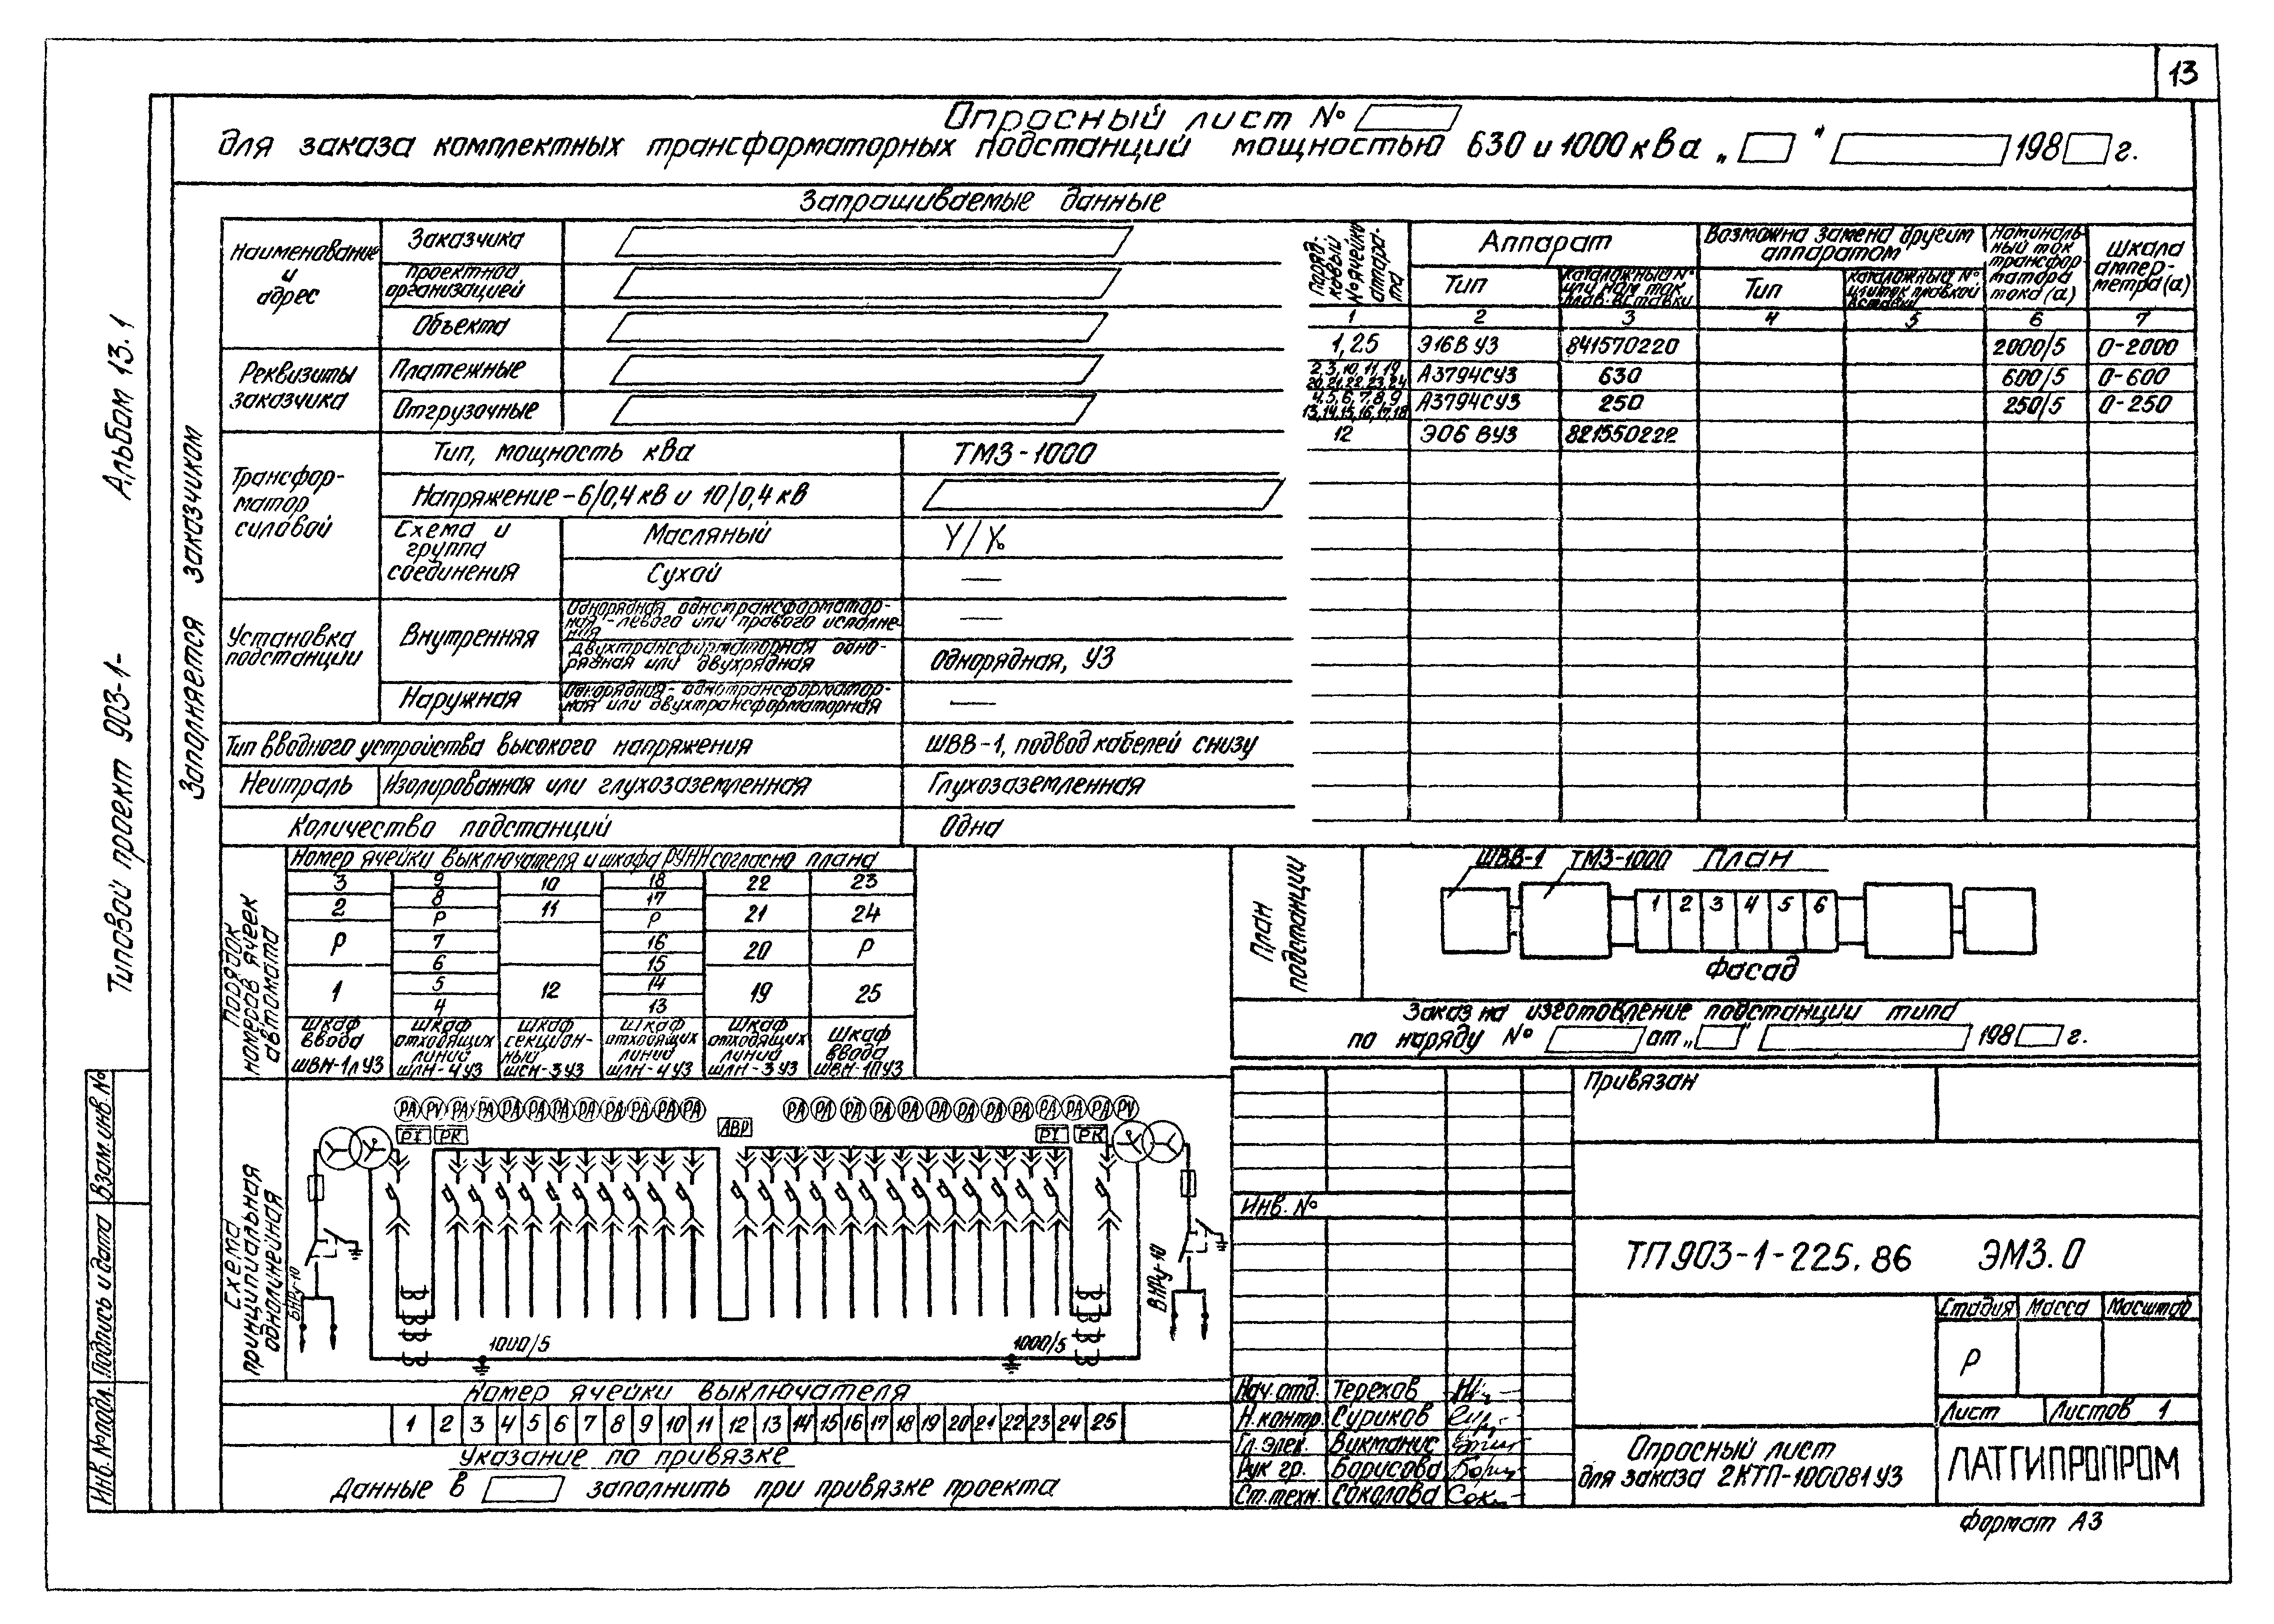 13
Опросный лист №
для заказа комплектных трансформаторных подстанций мощностью 630 и 1000 ква „ " 198 г.
Запрашиваемые данные
Типовой проект 903-1-
Альбом 13.1
Заполняется заказчиком
Наименование
и
адрес
Заказчика
проектной
организацией
Объекта
Реквизиты
заказчика
Платежные
Отгрузочные
Трансфор-
матор
силовой
Тип, мощность ква
ТМЗ-1000
Напряжение-6/0,4 кв и 10/0,4 кв
Схема и
группа
соединения
Масляный
Y/Y₀
Сухой
—
Установка
подстанции
Внутренняя
Однорядная однотрансформатор-
ная - левого или правого исполне-
ния
—
двухтрансформаторная одно-
рядная или двухрядная
Однорядная, У3
Наружная
Однорядная - однотрансформатор-
ная или двухтрансформаторная
—
Тип вводного устройства высокого напряжения
ШВВ-1, подвод кабелей снизу
Нейтраль
Изолированная или глухозаземленная
Глухозаземленная
Количество подстанций
Одна
Поряд-
ковый
№ ячейки
аппара-
та
Аппарат
Возможна замена другим
аппаратом
Номиналь-
ный ток
трансфор-
матора
тока (а)
Шкала
ампер-
метра (а)
Тип
каталожный №
или ном. ток
плав. вставки
Тип
каталожный №
или ток плавкой
вставки
1 2 3 4 5 6 7
1, 25 Э16В У3 841570220 2000/5 0-2000
2, 3, 10, 11, 19
20, 21, 22, 23, 24
А3794СУ3 630 600/5 0-600
4, 5, 6, 7, 8, 9
13, 14, 15, 16, 17, 18
А3794СУ3 250 250/5 0-250
12 Э06 ВУ3 821550222
порядок
номеров ячеек
автомата
Номер ячейки выключателя и шкафа РУНН согласно плана
3 9 10 18 22 23
8 17
2 Р 11 Р 21 24
Р 7 16 20 Р
6 15
1 5 12 14 19 25
4 13
Шкаф
ввода
ШВН-1л У3
Шкаф
отходящих
линий
ШЛН-4 У3
Шкаф
секцион-
ный
ШСН-3 У3
Шкаф
отходящих
линий
ШЛН-4 У3
Шкаф
отходящих
линий
ШЛН-3 У3
Шкаф
ввода
ШВН-1П У3
План
подстанции
ШВВ-1 ТМЗ-1000 План
1 2 3 4 5 6
Фасад
Заказ на изготовление подстанции типа
по наряду № от „ " 198 г.
Схема
принципиальная
однолинейная
РА PV РА РА РА РА РА РА РА РА РА РА
РА РА РА РА РА РА РА РА РА РА РА РА PV
PI PK
АВР
PI PK
ВНРу-10
ВНРу-10
1000/5
1000/5
Номер ячейки выключателя
1 2 3 4 5 6 7 8 9 10 11 12 13 14 15 16 17 18 19 20 21 22 23 24 25
Указание по привязке
Данные в заполнить при привязке проекта
Инв. № подл. Подпись и дата Взам. инв. №
Привязан
Инв. №
ТП903-1-225.86 ЭМ3.0
Стадия Масса Масштаб
Р
Лист Листов 1
Нач. отд. Терехов
Н. контр. Суриков
Гл. элек. Викманис
Рук гр. Борисова
Ст. техн. Соколова
Опросный лист
для заказа 2КТП-100081 У3
ЛАТГИПРОПРОМ
Формат А3